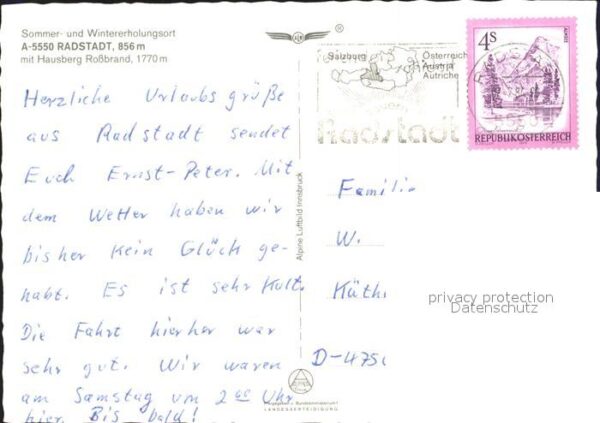 Sommer- und Wintererholungsort
A-5550 RADSTADT, 856 m
mit Hausberg Roßbrand, 1770 m
Herzliche Urlaubsgrüße
aus Radstadt sendet
Euch Ernst-Peter. Mit
dem Wetter haben wir
bisher kein Glück ge-
habt. Es ist sehr kalt.
Die Fahrt hierher war
sehr gut. Wir waren
am Samstag um 2 00 Uhr
hier. Bis bald!
Alpine Luftbild Innsbruck
LANDESVERTEIDIGUNG
®
Salzburg
Österreich
Austria
Autriche
Radstadt
4 S
REPUBLIK ÖSTERREICH
Familie
W.
Käthe
D-475
privacy protection
Datenschutz